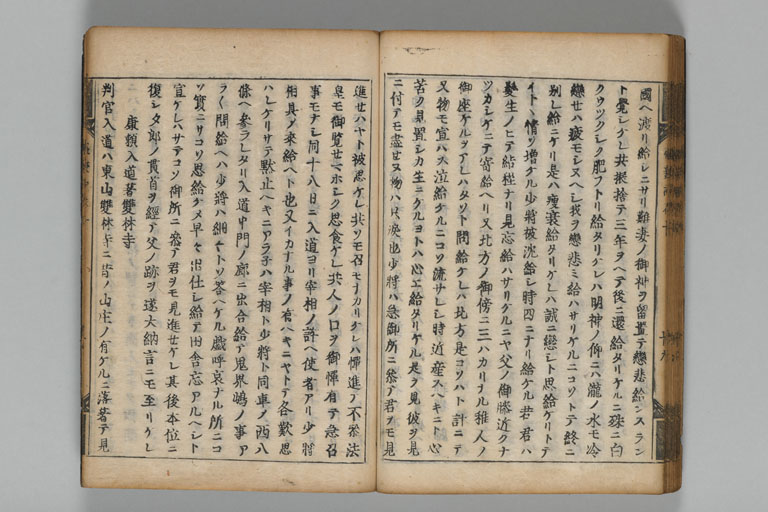 國ヘ渡リ給シニサリ難妻ノ御神ヲ留置テ戀悲給ンスラン
ト覺シケレ共振捨テ三年ヲヘテ後ニ還給タリケルニ殊ニ白
クウツクシク肥フトリ給タリケレハ明神ノ仰ニハ瀧ノ水モ冷
戀セハ疲モシヌヘシ我ヲ戀悲ミ給ハサリケルニコソトテ終ニ
別レ給ニケリ是ハ痩衰給タリケレハ誠ニ戀シト思給ケリトテ
イトヽ情ソ増ケル少将被流給シ時四ニナリ給ケル若君ハ
髮生ノヒテ結程ナリ見忘給ハサリケルニヤ父ノ御膝近クナ
ツカシケニテ寄給ヘリ又北方ノ御傍ニ三ハカリナル稚人ノ
御座ケルヲアレハタソト問給ケレハ北方是コソハト計ニテ
又物モ宣ハス泣給ケルニコソ流サレシ時近産スヘキニト心
苦ク見置シカ生ニケルヨトハ心エ給タリケル是ヲ見彼ヲ見
ニ付テモ盡セヌ物ハ只涙也少将ハ急御所ニ参テ君ヲモ見
進セハヤト被思ケレ共ソモ召モナカリケレハ憚進テ不参法
皇モ御覧セマホシク思食ケレ共人ノ口ヲ御憚有テ急召
事モナシ同十八日ニ入道ヨリ宰相ノ許ヘ使者アリ少将
相具ノ來給ヘト也又イカナル事ノ有ヘキニヤトテ各歎思
ハレケリサテ黙止ヘキニアラ子ハ宰相ト少将ト同車ノ西八
條ヘ参ラレタリ入道中門ノ廊ニ出合給テ鬼界嶋ノ事ア
ラ〱問給ヘハ少将ハ細〱トソ答ヘケル戯呼哀ナル所ニコ
ソ實ニサコソ思給ケメ早々出仕シ給テ田舎忘アルヘシト
宣ケレハサテコソ御所ニ参テ君ヲモ見進セケレ其後本位ニ
復シ郎ノ貫首ヲ經テ父ノ跡ヲ逐大納言ニモ至リケレ
康頼入道著雙林寺
判官入道ハ東山雙林寺ニ昔ノ山庄ノ有ケルニ落著テ見